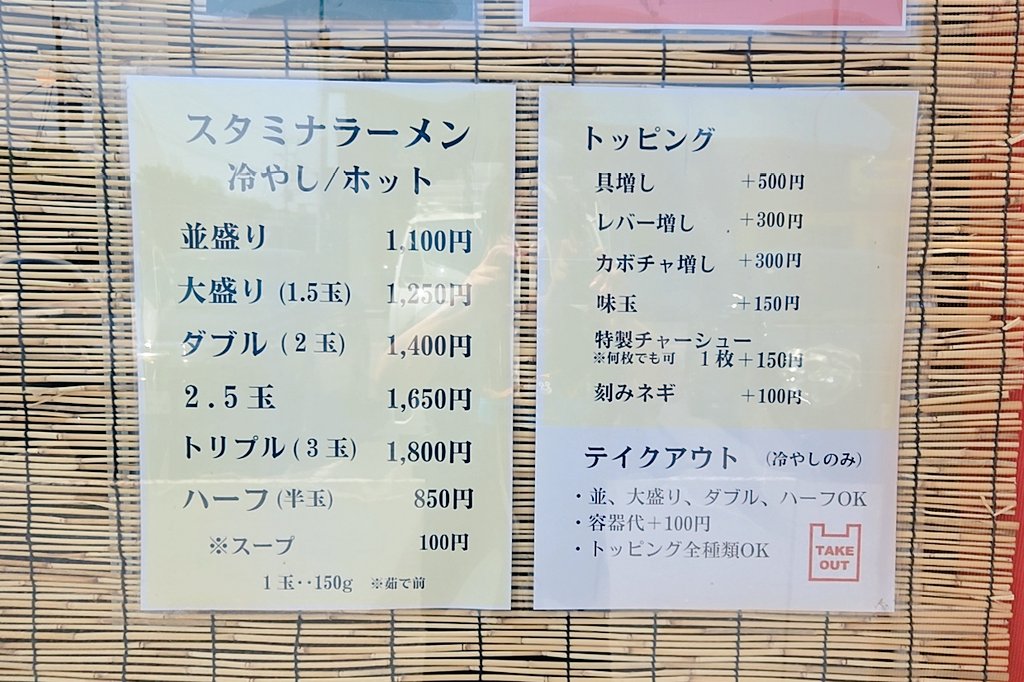 スタミナラーメン
冷やし/ホット
並盛り 1,100円
大盛り (1.5玉) 1,250円
ダブル (2玉) 1,400円
2.5玉 1,650円
トリプル (3玉) 1,800円
ハーフ (半玉) 850円
※スープ 100円
1玉‥150g ※茹で前
トッピング
具増し +500円
レバー増し +300円
カボチャ増し +300円
味玉 +150円
特製チャーシュー
※何枚でも可 1枚+150円
刻みネギ +100円
テイクアウト (冷やしのみ)
・並、大盛り、ダブル、ハーフOK
・容器代+100円
・トッピング全種類OK
TAKE
OUT